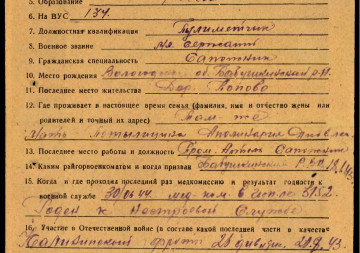 5. Образование
6. На ВУС 134.
7. Должностная квалификация Пулиметчик
8. Военное звание мл. сержант
9. Гражданская специальность Сапожник
10. Место рождения Вологодская об. Бабушкинский р-н
11. Последнее место жительства Дер. Попово
12. Где проживает в настоящее время семья (фамилия, имя и отчество жены или
родителей и точный их адрес) Там же
Мать
13. Последнее место работы и должность Пром. Артель Сапожник
14. Каким райгорвоенкоматом и когда призван Бабушкинский
15. Когда и где проходил последний раз медкомиссию и результат годности к
военной службе
Годен к нестроевой Службе
16. Участие в Отечественной войне (в составе какой последней части и в качестве
Калининский фронт 28 дивизи.